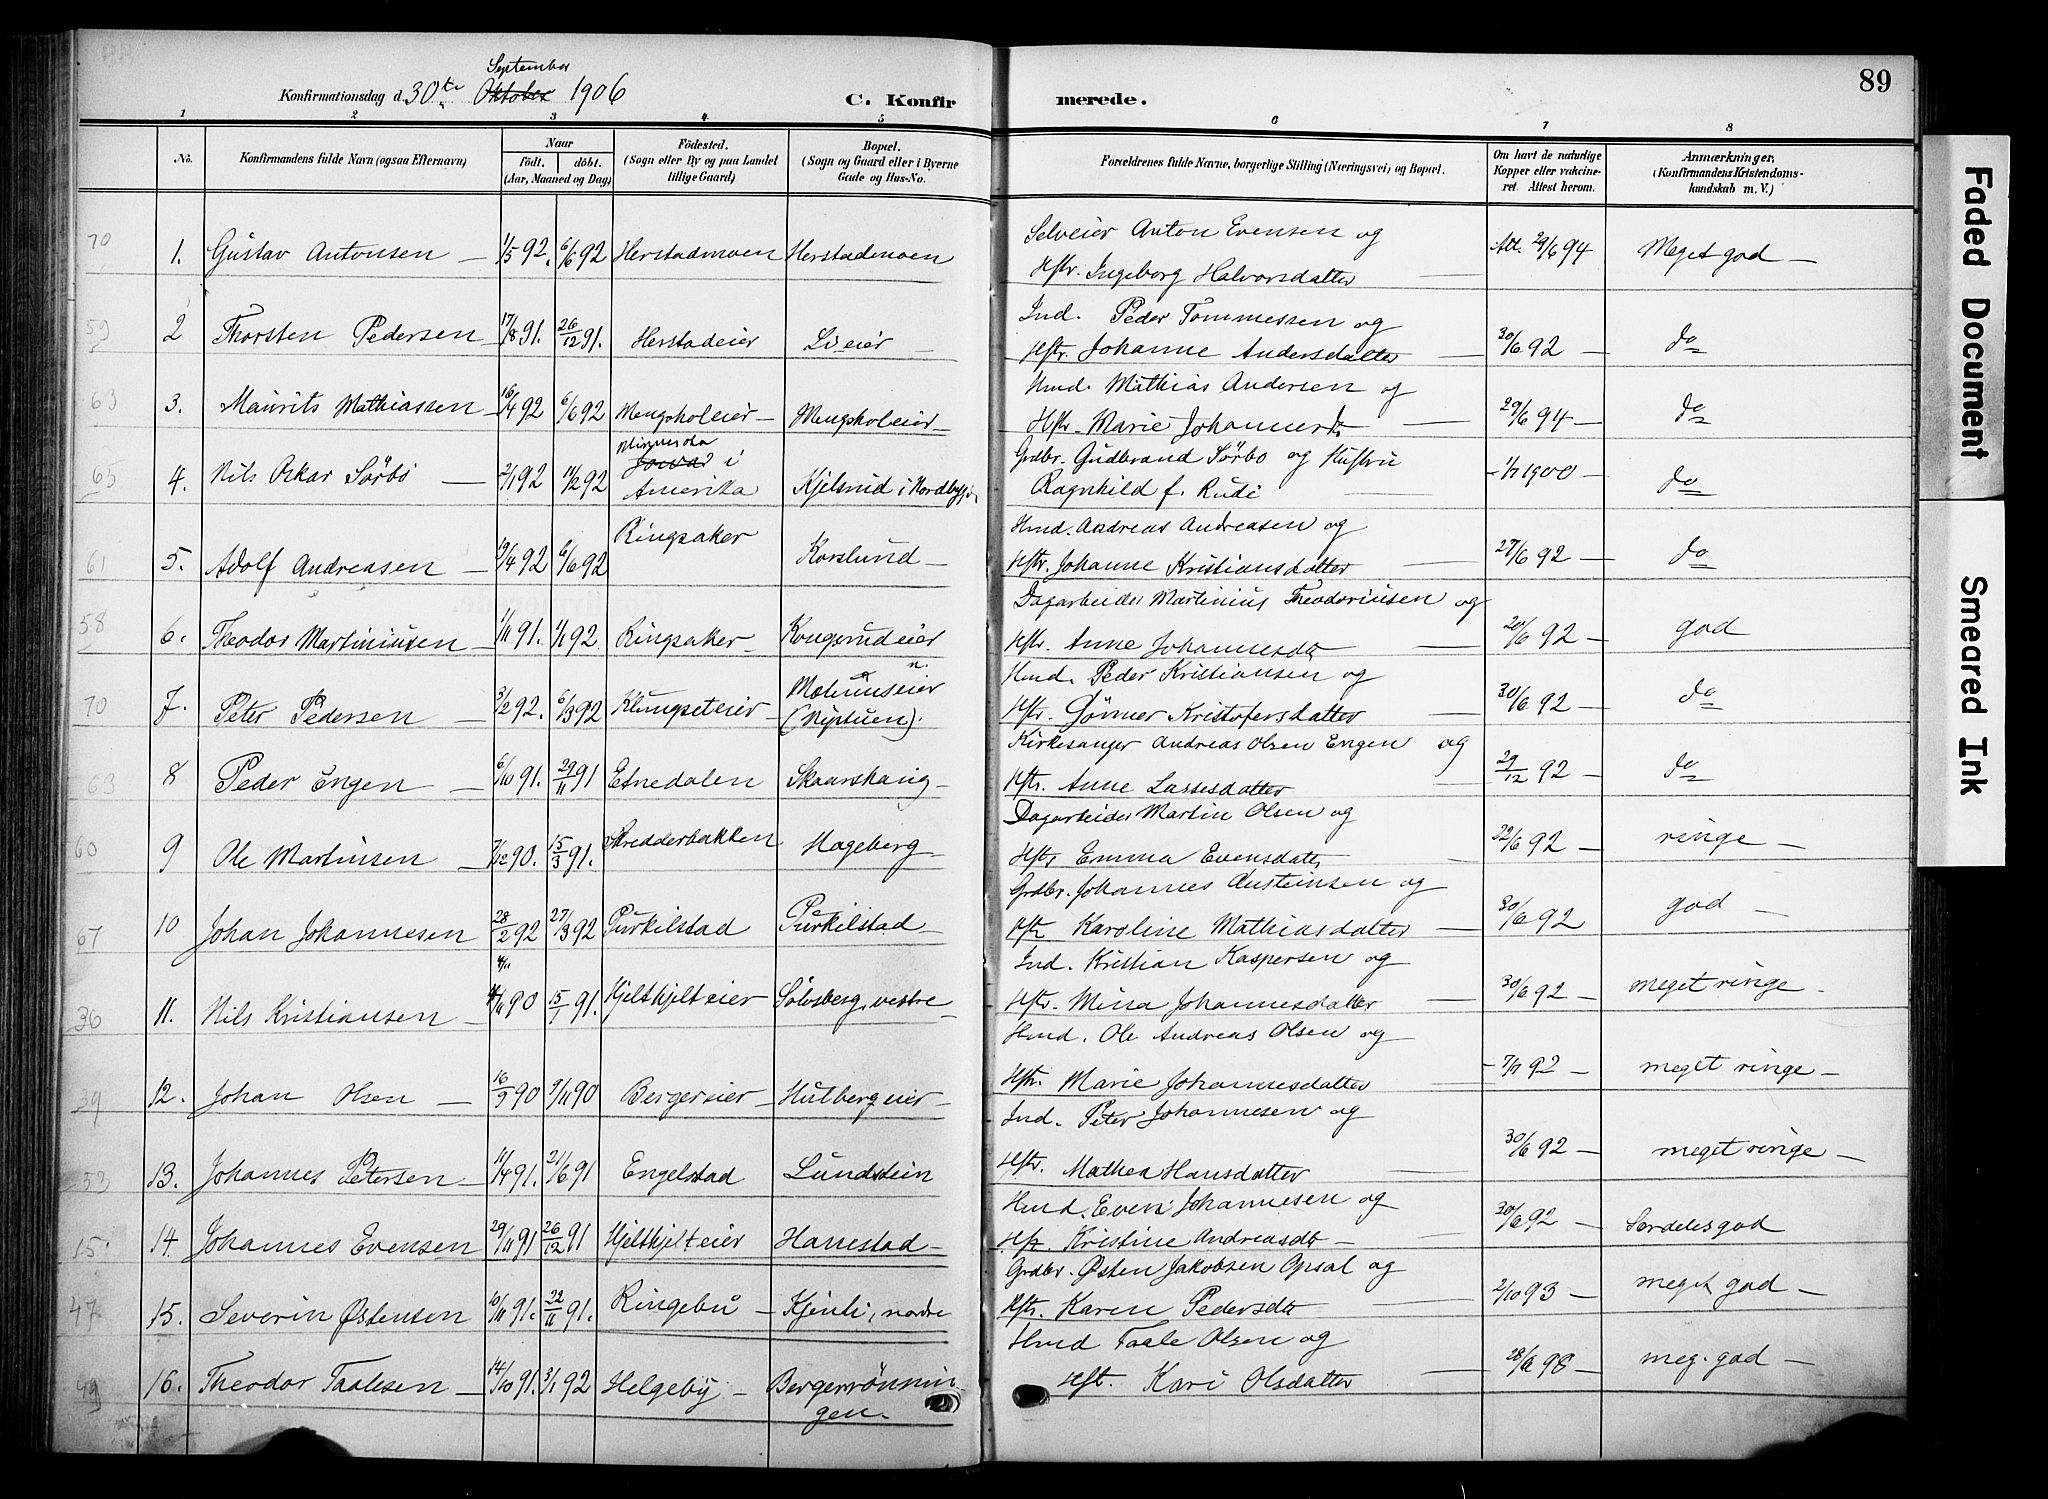 September
Konfirmationsdag d. 30te Oktober 1906
C. Konfirmerede.
89
1 2 3 4 5 6 7 8
No. Konfirmandens fulde Navn (ogsaa Efternavn) Naar født. døbt. (Aar, Maaned og Dag) Fødested. (Sogn eller By og paa Landet tillige Gaard) Bopæl. (Sogn og Gaard eller i Byerne Gade og Hus-No. Forældrenes fulde Navne, borgerlige Stilling (Næringsvei) og Bopæl. Om havt de naturlige Kopper eller vakcineret. Attest herom. Anmærkninger. (Konfirmandens Kristendomskundskab m. V.)
70 1. Gustav Antonsen — 1/5 92. 6/6 92 Herstadmoen Herstadmoen Selveier Anton Evensen og
Hstr. Ingeborg Halvorsdatter Att. 29/6 94 Meget god —
59 2 Thorsten Pedersen 17/8 91. 26/12 91. Herstadeier Lieier — Ind. Peder Tommessen og
Hstr. Johanne Andersdatter — 30/6 92 — do
63 3. Maurits Mathiassen 16/4 92 6/6 92 Mengskoleier — Mengskoleier Hmd. Mathias Andersen og
Hstr. Marie Johannesd. — 29/6 94 — do
65 4. Nils Oskar Sørbø — 2/1 92 14/2 92 Minnesota i
Amerika Kjelsrud i Nordbygd. Grdbr. Gudbrand Sørbo og Hustru
Ragnhild f. Rudi — 1/7 1900 — do
61 5. Adolf Andreasen — 19/4 92 6/6 92 Ringsaker Korslund — Hmd. Andreas Andreasen og
Hstr. Johanne Kristiansdatter — 27/6 92 — do
58 6. Theodor Martiniusen 1/11 91. 1/1 92 Ringsaker — Kongsrudeier Dagarbeider Martinius Theodoriusen og
Hstr. Anne Johannesdt — 20/6 92 — god
70 7. Peter Pedersen — 3/2 92. 6/3 92 Klungseteier — Mælumseier n.
(Nystuen). Hmd. Peder Kristiansen og
Hstr. Gønner Kristofersdatter — 30/6 92 — do
63 8 Peder Engen — 6/10 91. 29/11 91 Etnedalen Skaarshaug — Kirkesanger Andreas Olsen Engen og
Hstr. Anne Larsesdatter 29/12 92 — do
60 9 Ole Martinsen — 7/12 90. 15/3 91. Skredderbakken Hageberg — Dagarbeider Martin Olsen og
Hstr Emma Evensdatter 22/6 92 — ringe —
67 10 Johan Johannesen 28/2 92 27/3 92 Purkilstad Purkilstad — Grdbr. Johannes Austeinsen og
Hstr Karoline Mathiasdatter — 30/6 92 god —
36 11. Nils Kristiansen — 4/11 90 15/1 91. Hjeltkjelteier Sølvsberg, vestre — Ind. Kristian Kaspersen og
Hstr. Mina Johannesdatter — 30/6 92 — meget ringe —
39 12. Johan Olsen — 16/9 90 9/11 90 Bergereier — Hulbergeier — Hmd. Ole Andreas Olsen og
Hstr. Marie Johannesdatter — 7/7 92 — meget ringe —
53 13. Johannes Petersen — 11/4 91. 21/6 91 Engelstad Lundstein Ind. Peter Johannesen og
Hstr. Mathea Hansdatter — 30/6 92 — meget ringe —
15 14. Johannes Evensen 29/11 91 26/12 91 Hjeltkjelteier Hanestad — Hmd. Even Johannesen og
Hstr. Kristine Andreasdt — 30/6 92 — Særdeles god
47 15. Severin Østensen 10/11 91. 22/11 91. Ringebu — Kjenli, nordre Grdbr. Østen Jakobsen Opsal og
Hstr. Karen Pedersdt 2/10 93 — meget god —
49 16. Theodor Taalesen — 14/10 91. 3/1 92 Helgeby — Bergerrønnin-
gen. Hmd Taale Olsen og
Hstr. Kari Olsdatter 28/6 98 — meg. god —
Faded Document
Smeared Ink